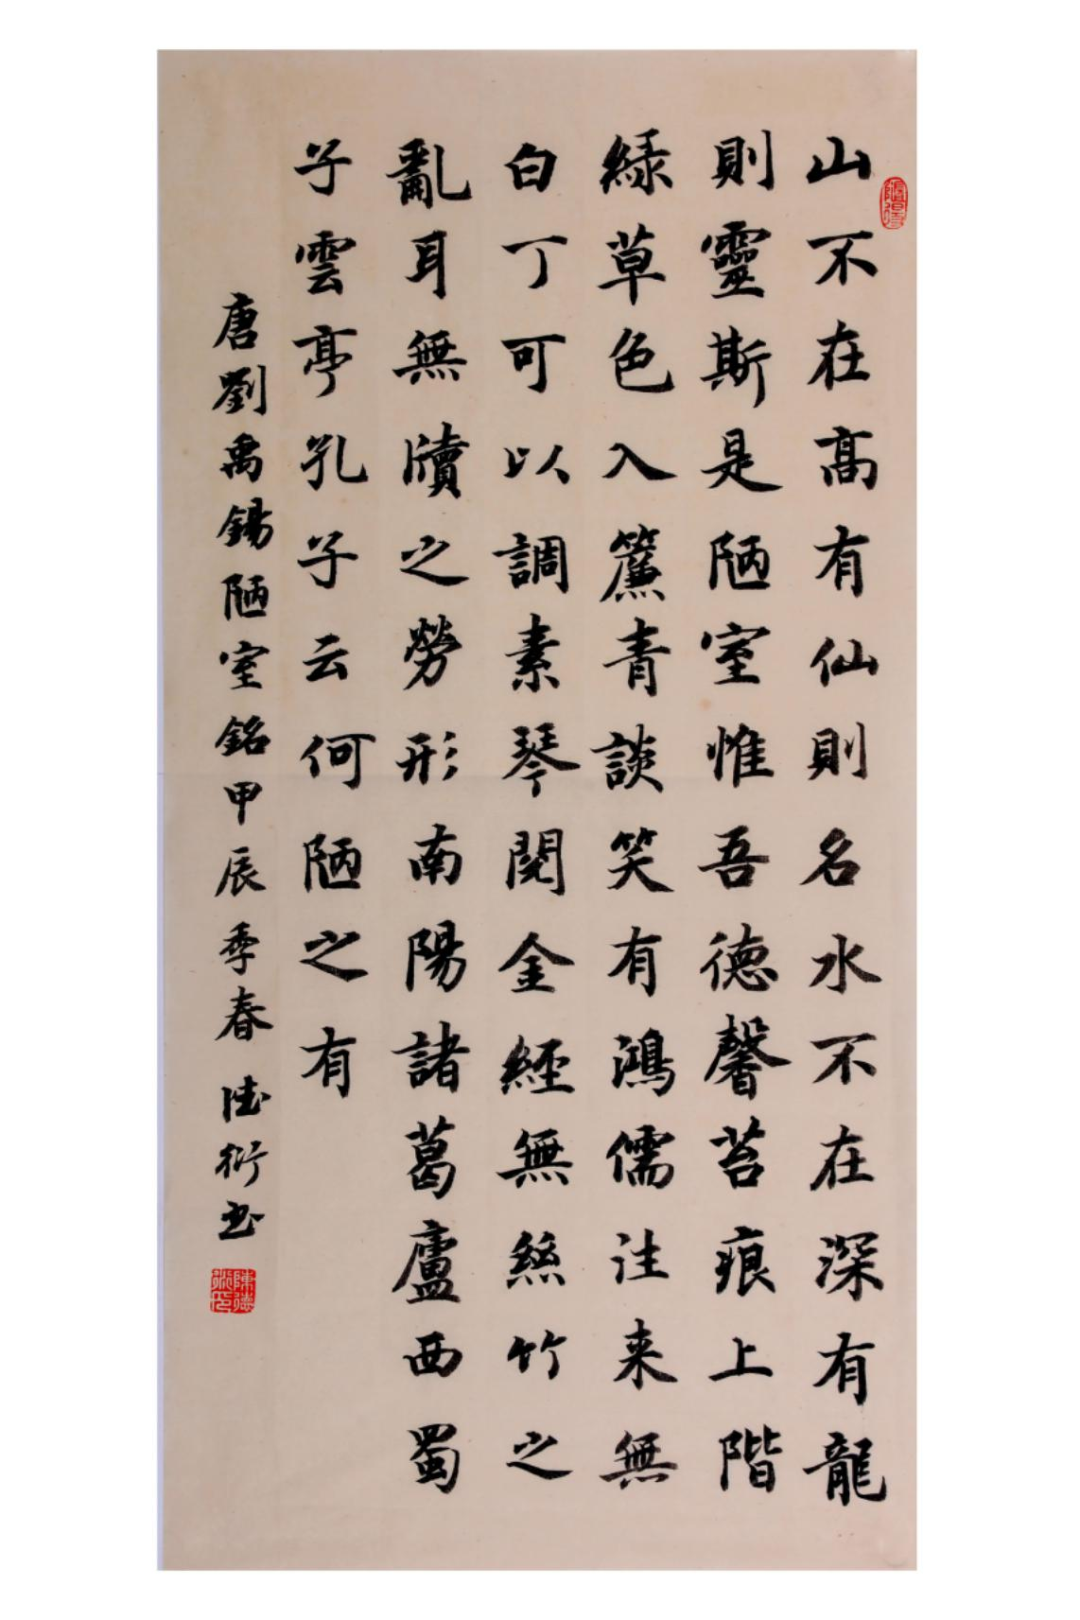 山不在高有仙則名水不在深有龍
則靈斯是陋室惟吾德馨苔痕上階
緑草色入簾青談笑有鴻儒往来無
白丁可以調素琴閱金經無絲竹之
亂耳無牘之勞形南陽諸葛廬西蜀
子雲亭孔子云何陋之有
唐劉禹錫陋室銘甲辰季春德衍书